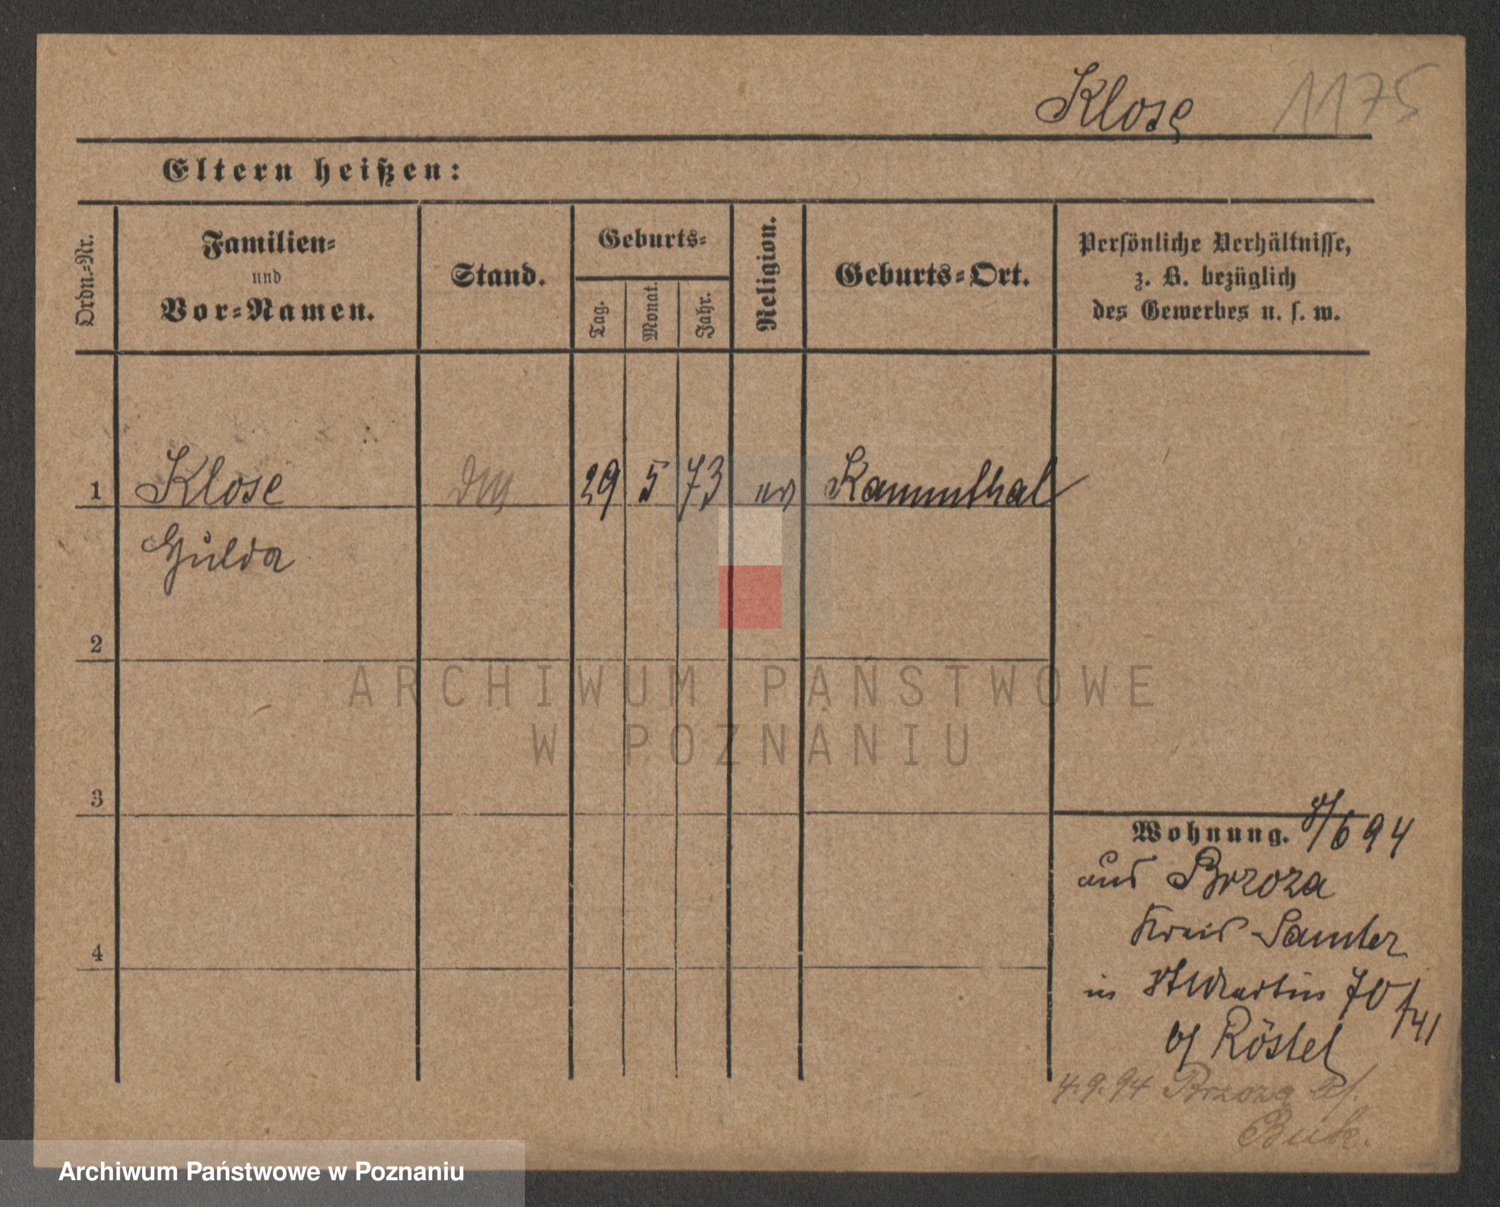 Klose 1175
Eltern heißen:
Ordn.-Nr.
Familien-
und
Vor-Namen.
Stand.
Geburts-
Tag.
Monat.
Jahr.
Religion.
Geburts-Ort.
Persönliche Verhältnisse,
z. B. bezüglich
des Gewerbes u. s. w.
1 Klose 29 5 73 ev Kammthal
Hulda
2
3
4
Wohnung. 8/6 94
aus Brzoza
Kreis Samter
in St Martin 70/41
b/ Röstel
4.9.94 Brzoza
Buk.
ARCHIWUM PAŃSTWOWE
W POZNANIU
Archiwum Państwowe w Poznaniu